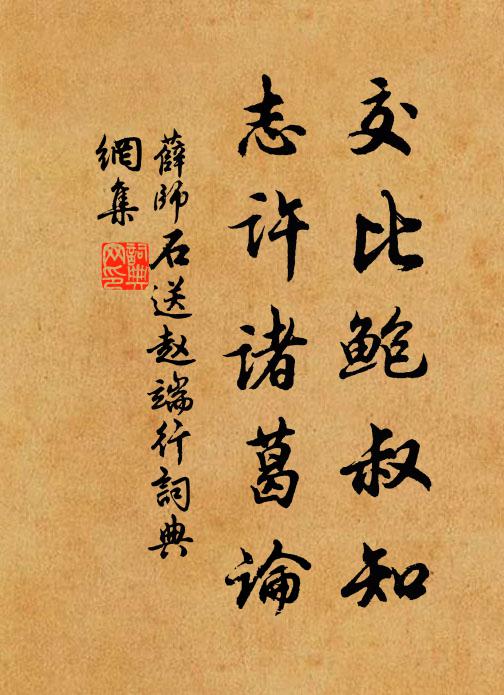 交比鲍叔知
志许诸葛论
薛师石送赵端行詞典
網集
詞典網印